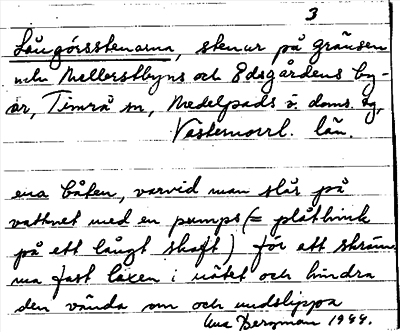 3
Långörsstenarna, stenar på gränsen
mln Mellerstbyns och Edsgårdens by-
ar, Timrå sn, Medelpads ö. doms. tg,
Västernorrl. län.
ena båten, varvid man slår på
vattnet med en pumps (= plåthink
på ett långt skaft) för att skräm-
ma fast laxen i nätet och hindra
den vända om och undslippa
Bergman 1944.